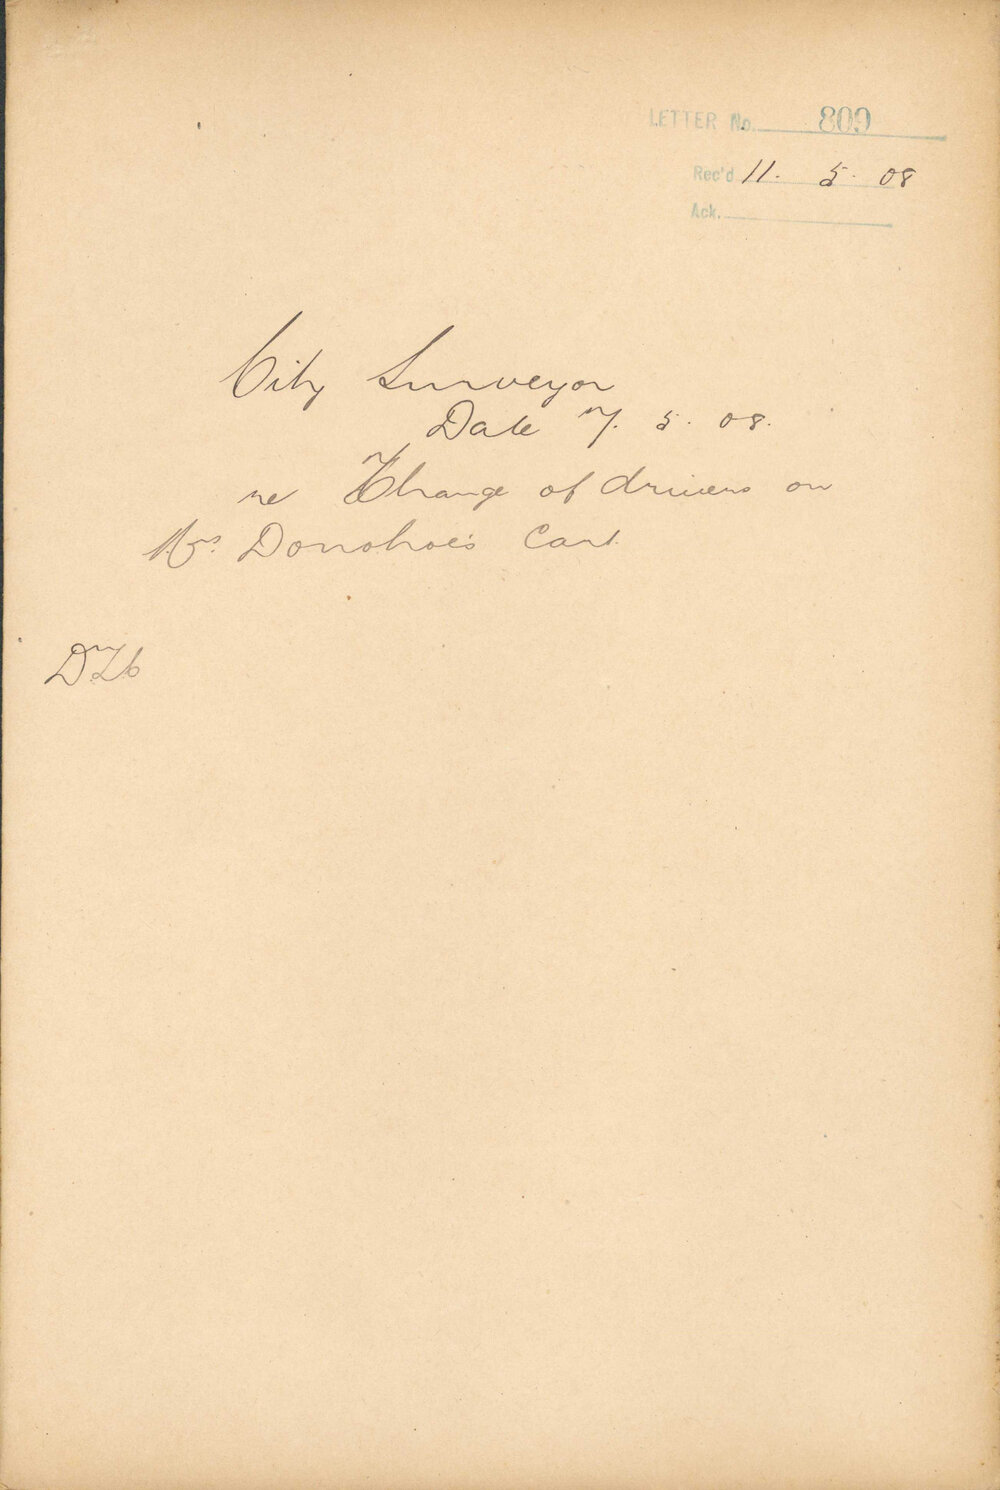 LETTER No. 809
Rec'd 11. 5. 08
Ack.
City Surveyor
Date 7. 5. 08.
re Change of drivers on
Mrs. Donohoe's Cart.